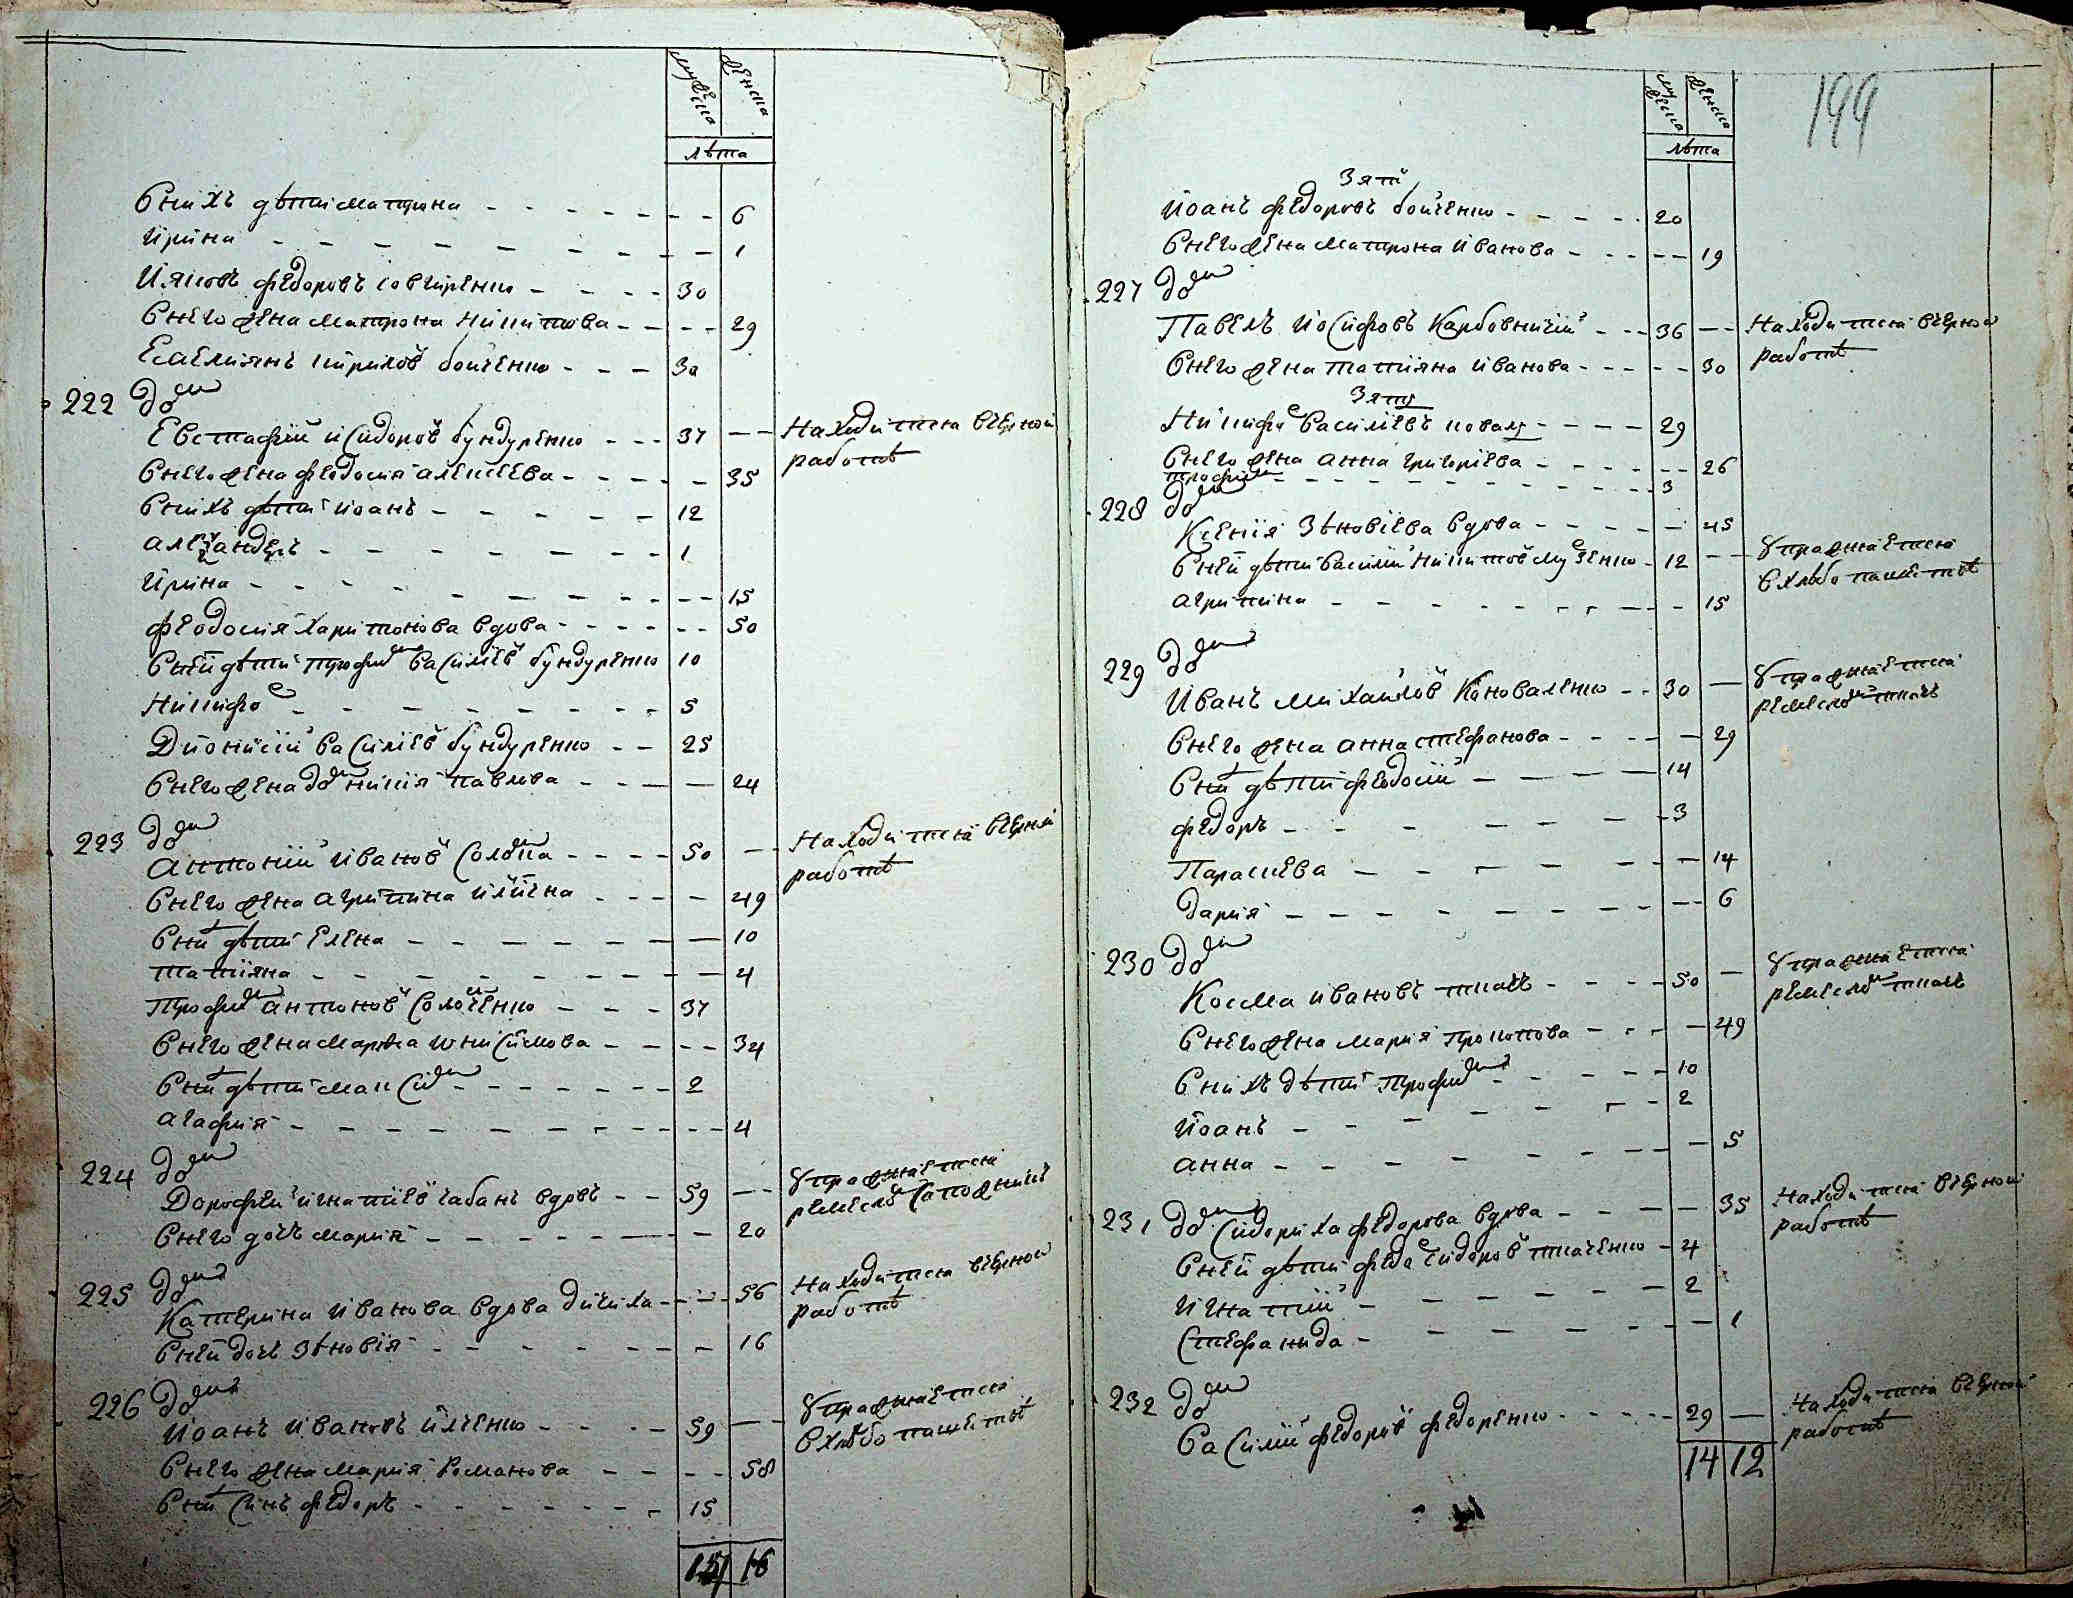 мужеска женска
лѣта
Єнихъ дѣти матрона 6
ирина 1
Ияковъ федоровъ 30
Єнего жена матрона никитова 29
Емелиянъ кирилов бойченко 30
222 дом
Евстафий исидоров бундуренко 37 Находится вчерной
работѣ
Єнего жена феодосия алексѣева 35
Єнихъ дѣти иоанъ 12
алеѯандеръ 1
ирина 15
феодосия харитонова вдова 50
Єней дѣти трофим василиев бундуренко 10
Никифор 5
Дионисий василиев бундуренко 25
Єнего жена домникия павлова 24
223 дом
антоний иванов солопа 50 Находится вчерной
работѣ
Єнего жена агрипина илиина 49
Єних дѣти елена 10
татияна 4
трофим антонов 37
Єнего жена марѳа онисимова 34
Єних дѣти максим 2
агафия 4
224 дом
Дорофей игнатиев чабанъ вдовъ 59 Упражняется
ремеслом сапожникъ
Єнего дочъ мария 20
225 дом
Катерина иванова вдова дичиха 56 Находится вчерной
работѣ
Єней дочъ зѣновия 16
226 дом
Иоанъ ивановъ илченко 59 Упражняется
в хлѣбопашествѣ
Єнего жена мария романова 58
Єних синъ федоръ 15
15 16
199
мужеска женска
лѣта
Зяти
Иоанъ федоровъ бойченко 20
Єнего жена матрона иванова 19
227 дом
Павелъ иосифовъ Карбовничий 36 Находится вчерной
работѣ
Єнего жена татияна иванова 30
Зятъ
Никифор василиевъ коваль 29
Єнего жена анна григориева 26
трофим 3
228 дом
Ксения зѣновиева вдова 45
Єней дѣти василий никитов 12 Упражняется
в хлѣбопашествѣ
агрипина 15
229 дом
Иванъ михайлов Коноваленко 30 Упражняется
ремеслом ткачъ
Єнего жена анна стефанова 29
Єних дѣти феодосий 14
федоръ 3
Параскева 14
дария 6
230 дом
Косма ивановъ ткачъ 50 Упражняется
ремеслом ткачъ
Єнего жена мария прокопова 49
Єнихъ дѣти трофим 10
Иоанъ 2
анна 5
231 дом Сидориха федорова вдова 35 Находится вчерной
работѣ
Єней дѣти федор сидоров ткаченко 4
игнатий 2
Стефанида 1
232 дом
Василий федоров федоренко 29 Находится вчерной
работѣ
14 12